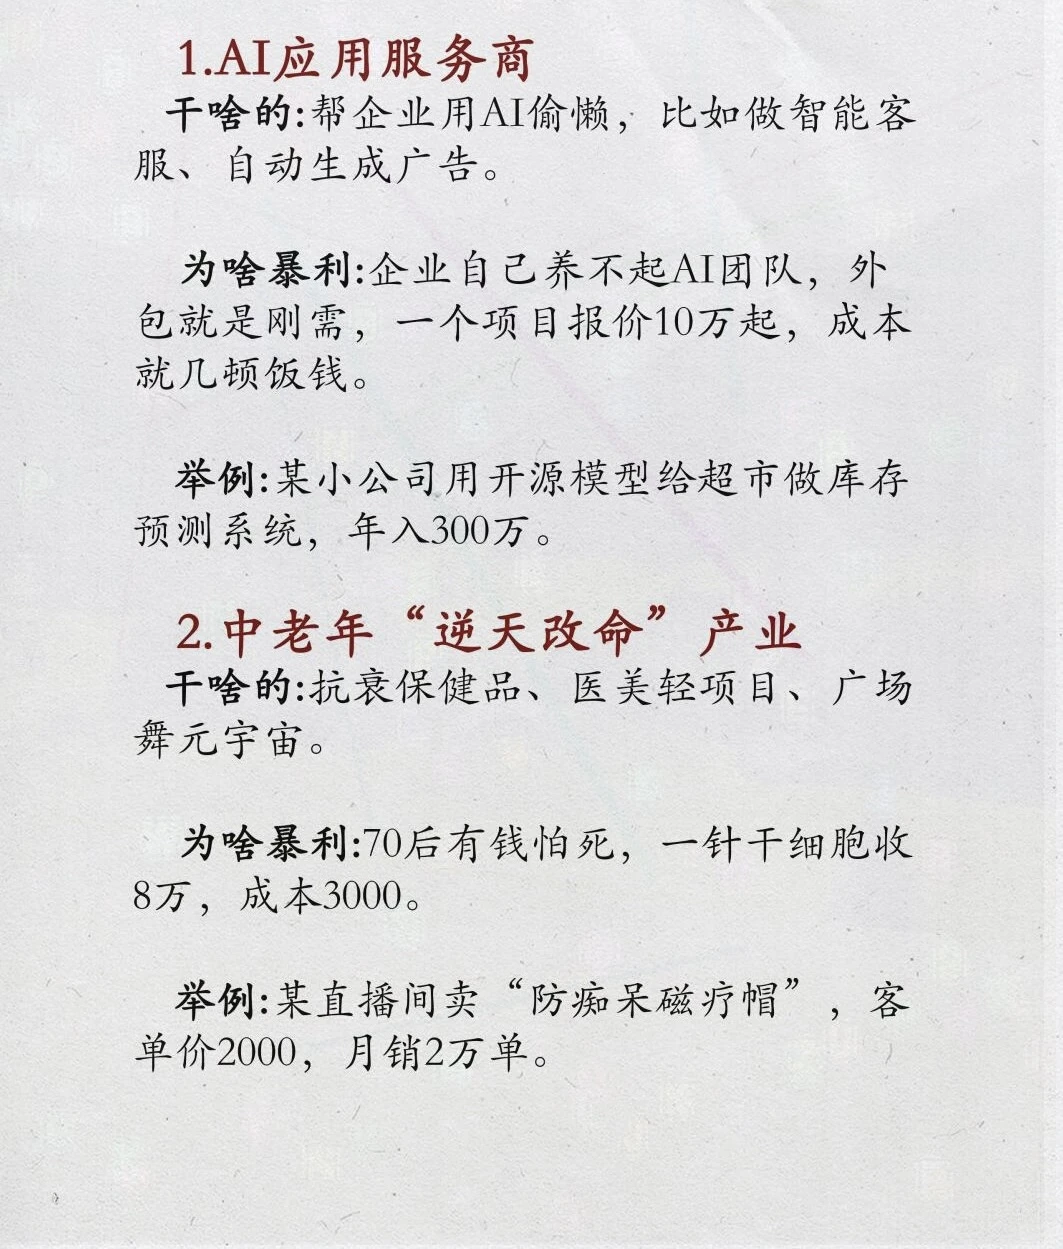 1.AI应用服务商
干啥的:帮企业用AI偷懒，比如做智能客
服、自动生成广告。
为啥暴利:企业自己养不起AI团队，外
包就是刚需，一个项目报价10万起，成本
就几顿饭钱。
举例:某小公司用开源模型给超市做库存
预测系统，年入300万。
2.中老年“逆天改命”产业
干啥的:抗衰保健品、医美轻项目、广场
舞元宇宙。
为啥暴利:70后有钱怕死，一针干细胞收
8万，成本3000。
举例:某直播间卖“防痴呆磁疗帽”，客
单价2000，月销2万单。